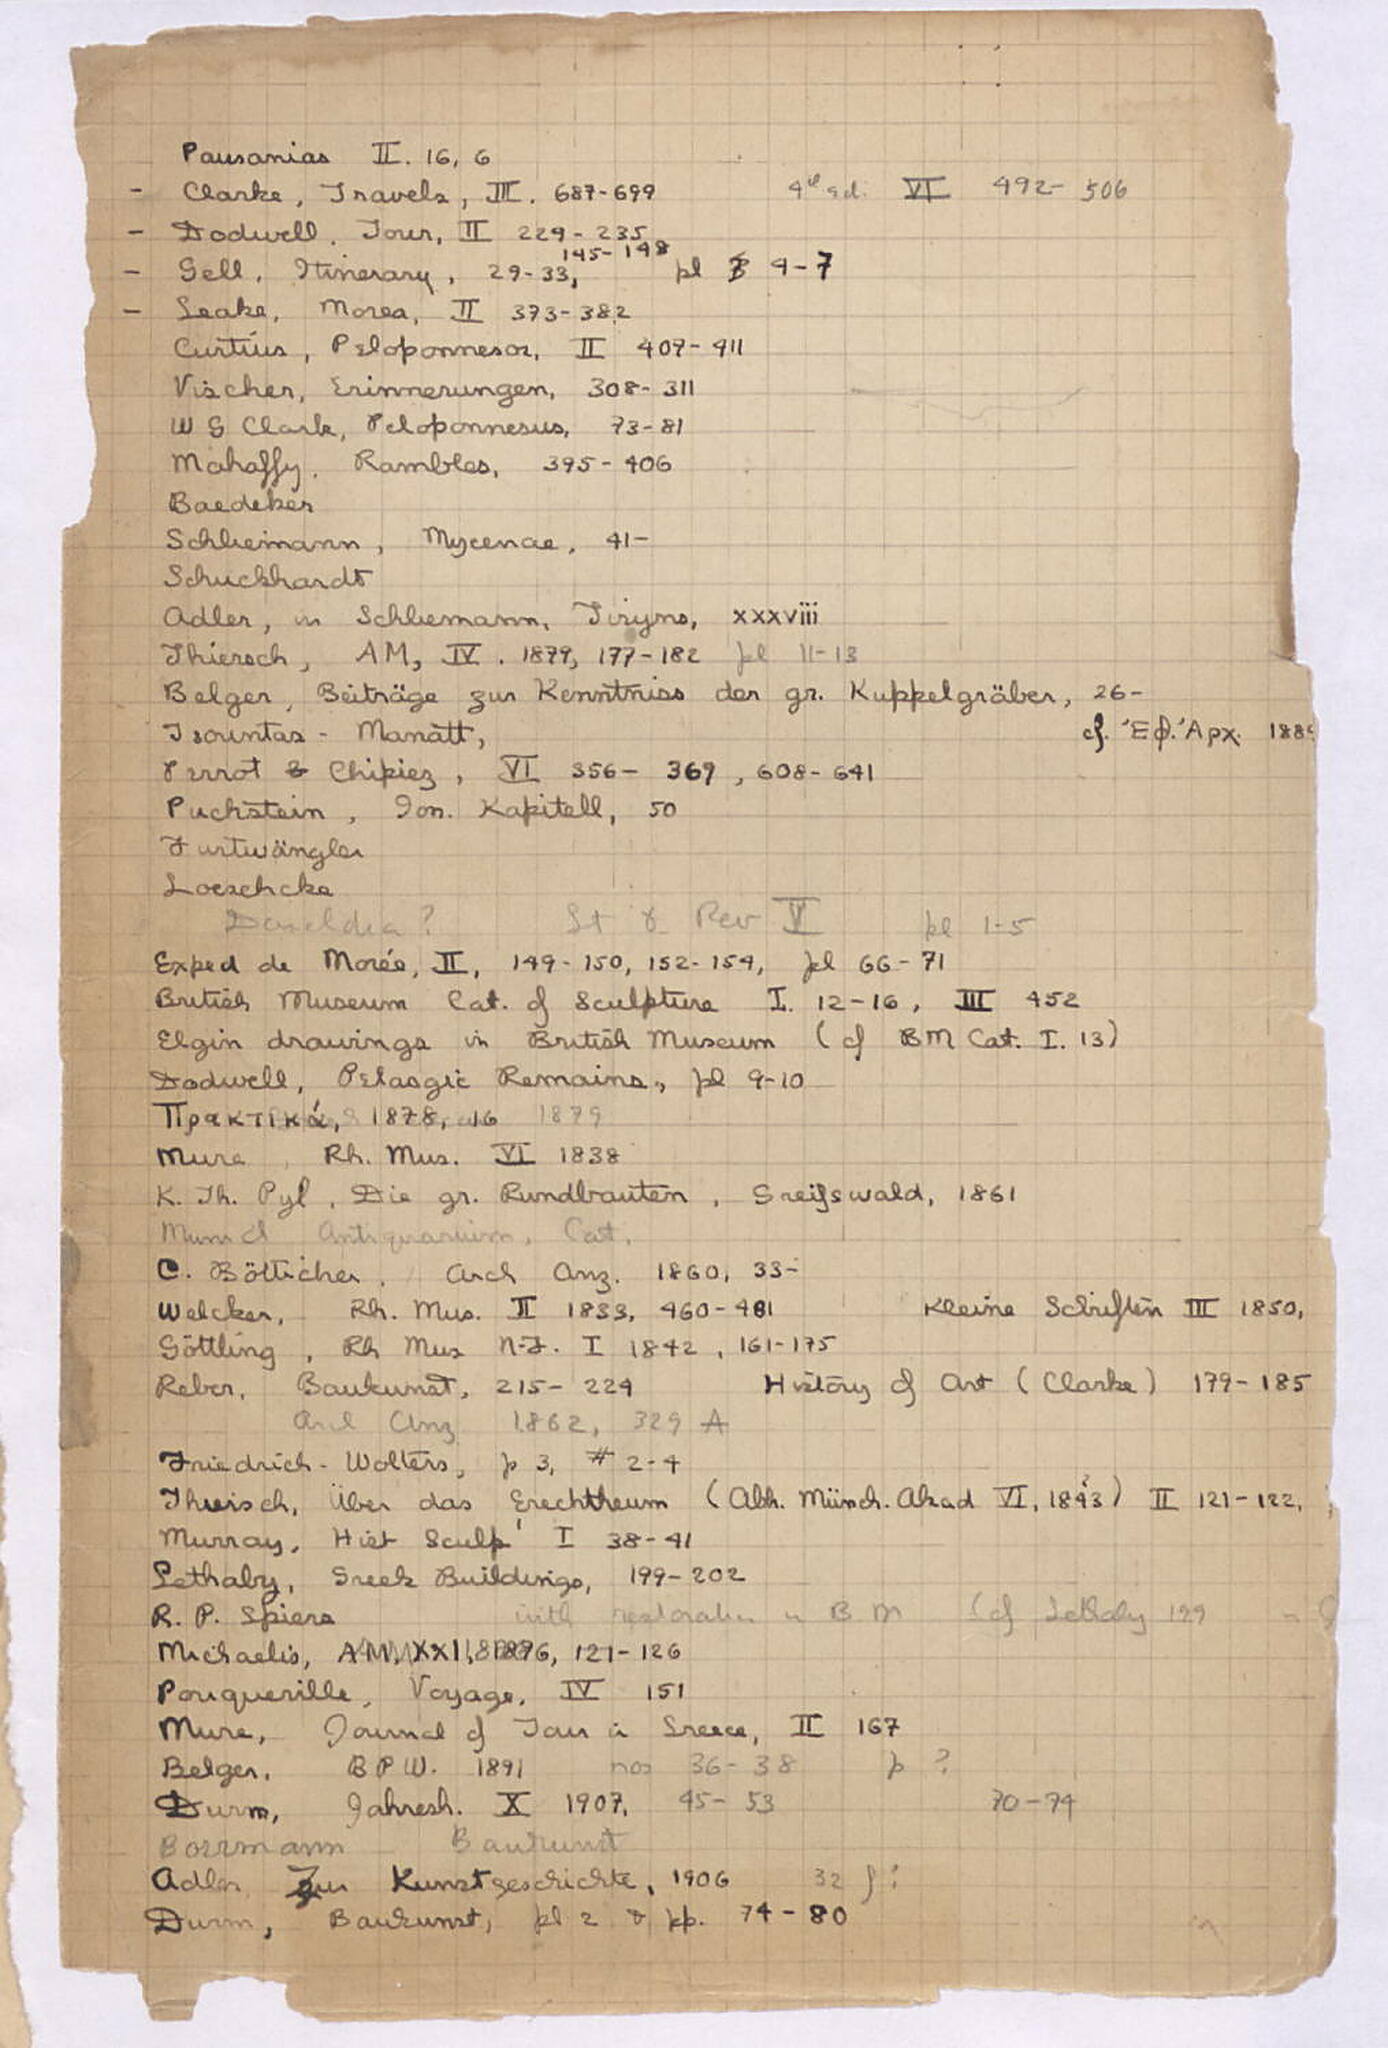 Pausanias II. 16, 6
- Clarke, Travels, III. 687-699 4th ed. VI 492-506
- Dodwell, Tour, II 229-235
- Gell, Itinerary, 29-33, 145-148 pl 4-7
- Leake, Morea, II 373-382
Curtius, Peloponnesos, II 407-411
Vischer, Erinnerungen, 308-311
W G Clark, Peloponnesus, 73-81
Mahaffy, Rambles, 395-406
Baedeker
Schliemann, Mycenae, 41-
Schuckhardt
Adler, in Schliemann, Tiryns, xxxviii
Thiersch, AM, IV. 1879, 177-182 pl 11-13
Belger, Beiträge zur Kenntniss der gr. Kuppelgräber, 26-
Tsountas - Manatt, cf. Ἐφ. Ἀρχ. 188
Perrot & Chipiez, VI 356-369, 608-641
Puchstein, Ion. Kapitell, 50
Furtwängler
Loeschcke
St & Rev V pl 1-5
Exped de Morée, II, 149-150, 152-154, pl 66-71
British Museum Cat. of Sculpture I. 12-16, III 452
Elgin drawings in British Museum (cf BM Cat. I. 13)
Dodwell, Pelasgic Remains, pl 9-10
Πρακτικά, 1878, 16 1879
Mure, Rh. Mus. VI 1838
K. Th. Pyl, Die gr. Rundbauten, Greifswald, 1861
Munich Antiquarium, Cat.
C. Bötticher, Arch Anz. 1860, 33-
Welcker, Rh. Mus. II 1833, 460-481 Kleine Schriften III 1850,
Göttling, Rh Mus N.F. I 1842, 161-175
Reber, Baukunst, 215-224 History of Art (Clarke) 179-185
Arch Anz 1862, 329 A
Friedrich-Wolters, p 3, # 2-4
Thiersch, Über das Erechtheum (Abh. Münch. Akad VI, 1843) II 121-122,
Murray, Hist Sculp I 38-41
Lethaby, Greek Buildings, 199-202
R. P. Spiers with restoration in B M (cf Lethaby 199
Michaelis, AM, XXI, 1896, 121-126
Pouqueville, Voyage, IV 151
Mure, Journal of Tour in Greece, II 167
Belger, B P W. 1891 nos 36-38 p ?
Durm, Jahresh. X 1907, 45-53 70-74
Borrmann Baukunst
Adler Zur Kunstgeschichte, 1906 32 f
Durm, Baukunst, pl 2 & pp. 74-80